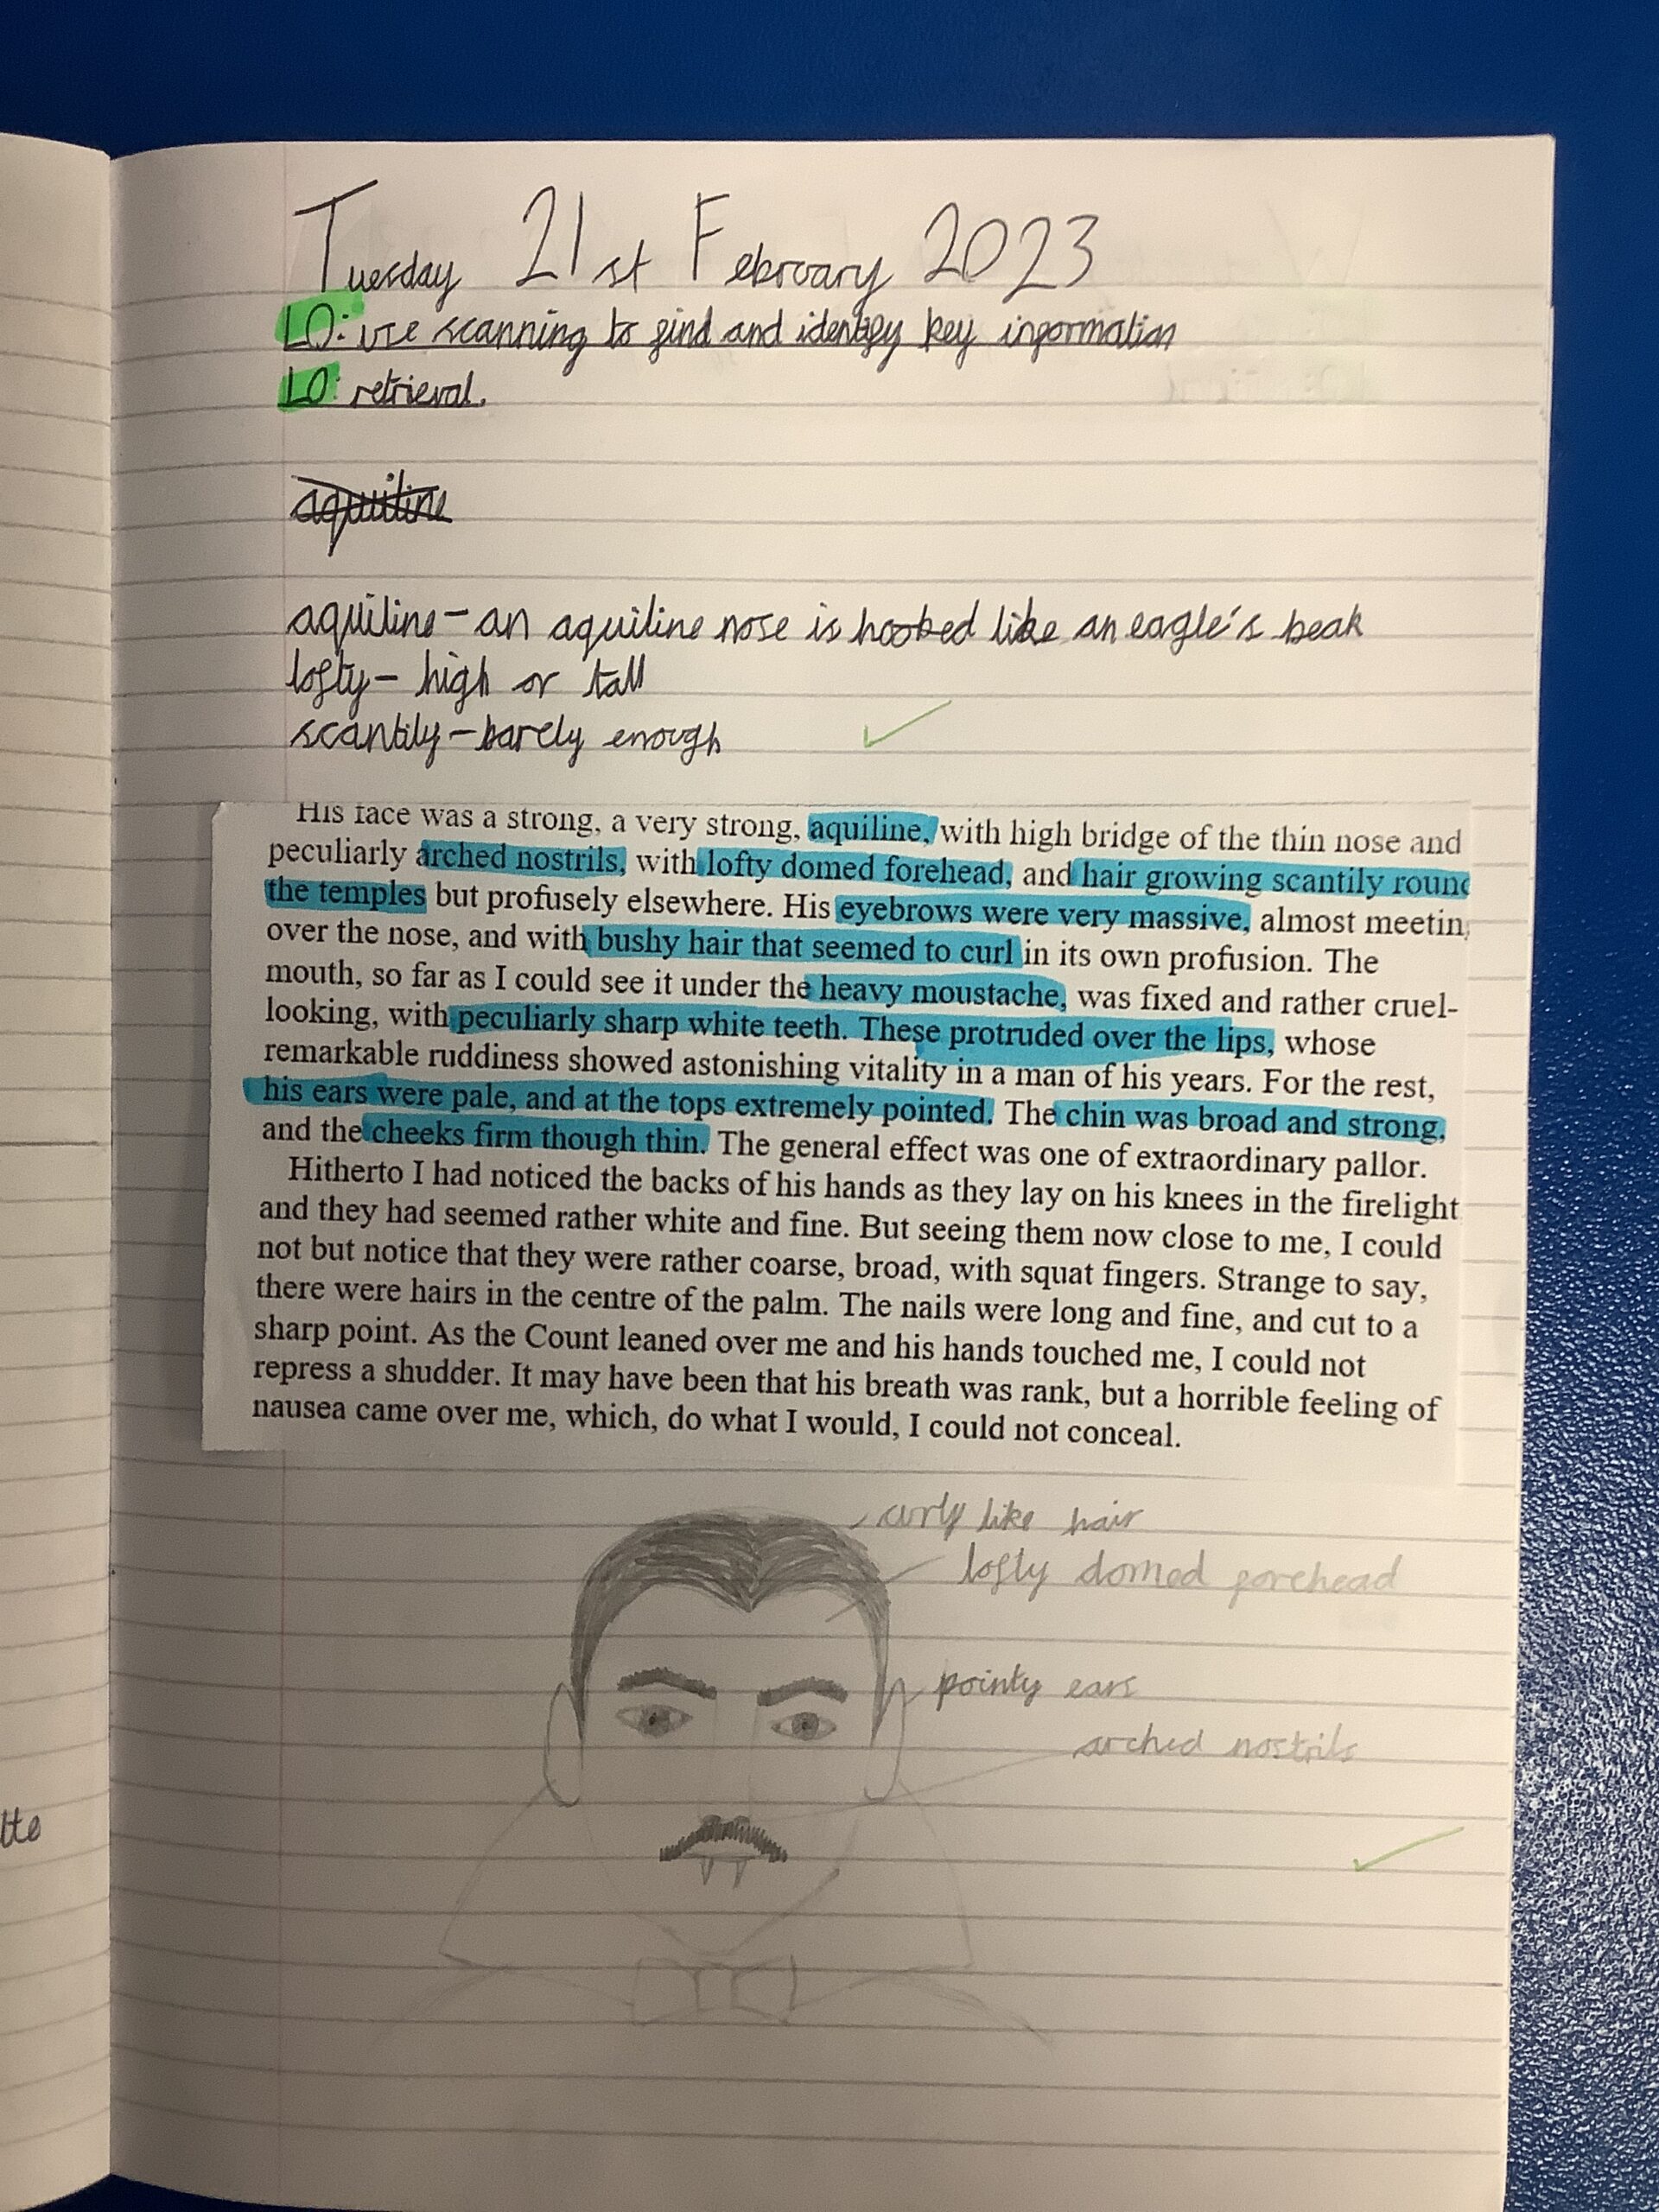 Tuesday 21st February 2023
LO: use scanning to find and identify key information
LO: retrieval.
aquiline
aquiline – an aquiline nose is hooked like an eagle's beak
lofty – high or tall
scantily – barely enough
His face was a strong, a very strong, aquiline, with high bridge of the thin nose and
peculiarly arched nostrils, with lofty domed forehead, and hair growing scantily round
the temples but profusely elsewhere. His eyebrows were very massive, almost meetin
over the nose, and with bushy hair that seemed to curl in its own profusion. The
mouth, so far as I could see it under the heavy moustache, was fixed and rather cruel-
looking, with peculiarly sharp white teeth. These protruded over the lips, whose
remarkable ruddiness showed astonishing vitality in a man of his years. For the rest,
his ears were pale, and at the tops extremely pointed. The chin was broad and strong,
and the cheeks firm though thin. The general effect was one of extraordinary pallor.
Hitherto I had noticed the backs of his hands as they lay on his knees in the firelight
and they had seemed rather white and fine. But seeing them now close to me, I could
not but notice that they were rather coarse, broad, with squat fingers. Strange to say,
there were hairs in the centre of the palm. The nails were long and fine, and cut to a
sharp point. As the Count leaned over me and his hands touched me, I could not
repress a shudder. It may have been that his breath was rank, but a horrible feeling of
nausea came over me, which, do what I would, I could not conceal.
curly like hair
lofty domed forehead
pointy ears
arched nostrils